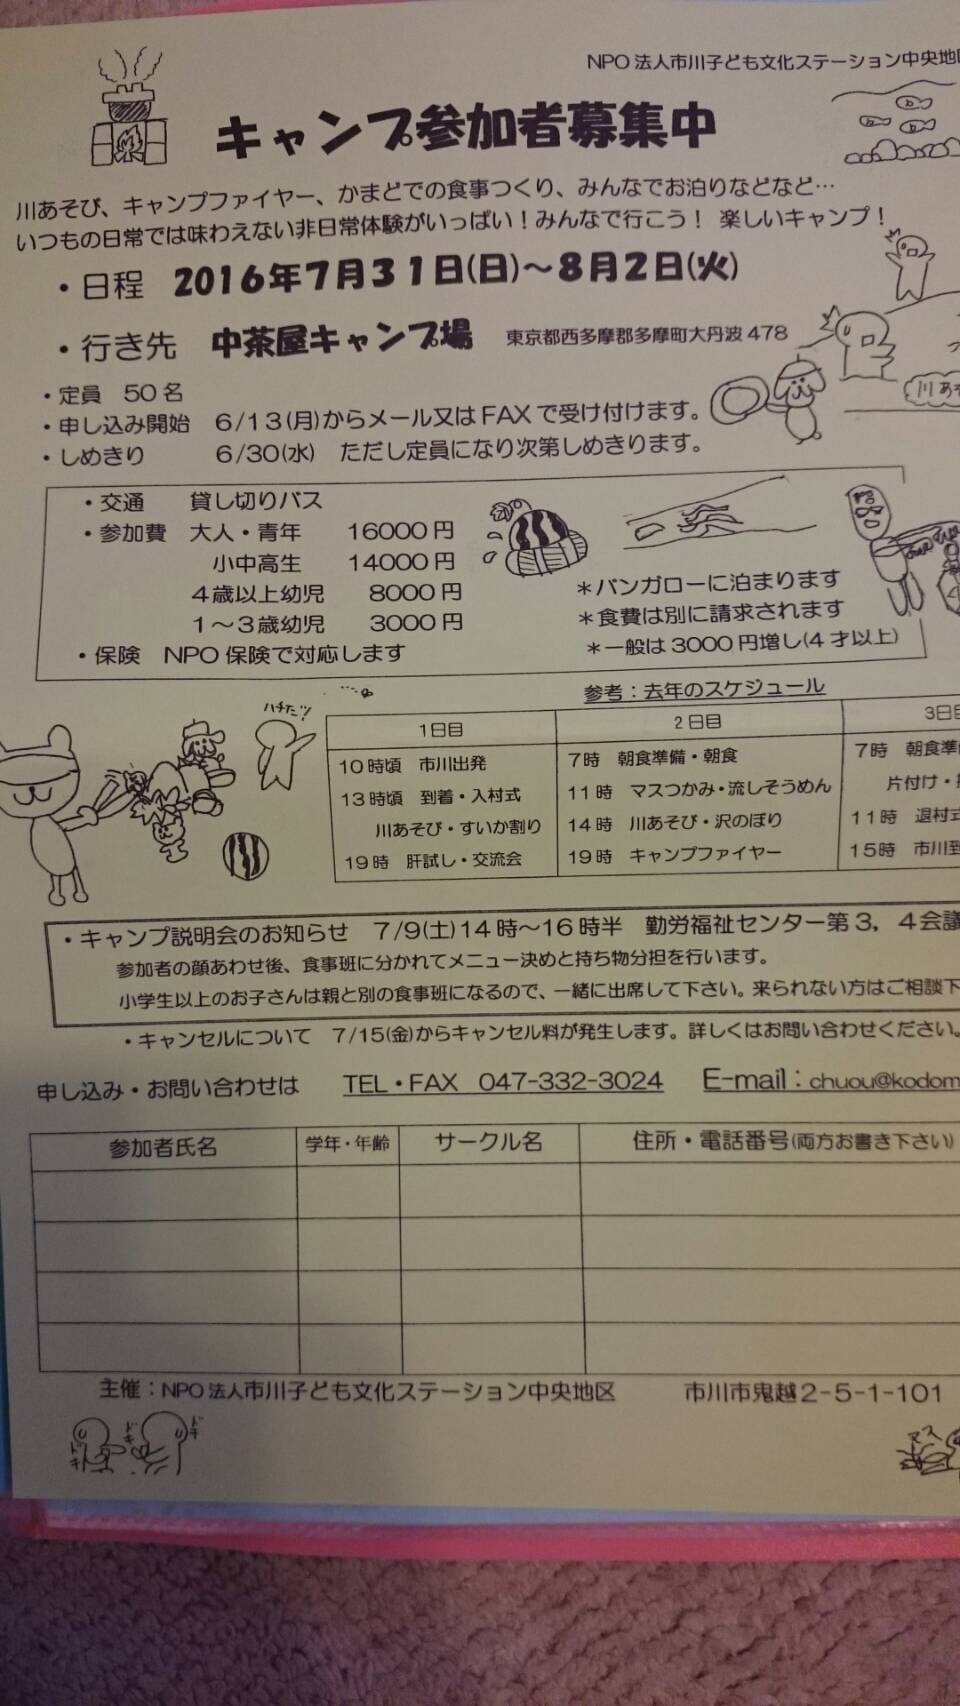 NPO 法人市川子ども文化ステーション中央地区
キャンプ参加者募集中
川あそび、キャンプファイヤー、かまどでの食事つくり、みんなでお泊りなどなど…
いつもの日常では味わえない非日常体験がいっぱい！みんなで行こう！ 楽しいキャンプ！
・日程 2016年7月31日(日)～8月2日(火)
・行き先 中茶屋キャンプ場 東京都西多摩郡多摩町大丹波 478
・定員 50 名
川あそ
・申し込み開始 6/13(月)からメール又は FAX で受け付けます。
・しめきり 6/30(水) ただし定員になり次第しめきります。
・交通 貸し切りバス
・参加費 大人・青年 16000 円
小中高生 14000 円
4歳以上幼児 8000 円
1～3歳幼児 3000 円
・保険 NPO 保険で対応します
＊バンガローに泊まります
＊食費は別に請求されます
＊一般は 3000 円増し(4 才以上)
ハチだッ!
参考：去年のスケジュール
1日目 2日目 3日目
10時頃 市川出発 7時 朝食準備・朝食 7時 朝食準
13時頃 到着・入村式 11時 マスつかみ・流しそうめん 片付け・
川あそび・すいか割り 14時 川あそび・沢のぼり 11時 退村式
19時 肝試し・交流会 19時 キャンプファイヤー 15時 市川到
・キャンプ説明会のお知らせ 7/9(土)14時～16時半 勤労福祉センター第3，4会議
参加者の顔あわせ後、食事班に分かれてメニュー決めと持ち物分担を行います。
小学生以上のお子さんは親と別の食事班になるので、一緒に出席して下さい。来られない方はご相談下
・キャンセルについて 7/15(金)からキャンセル料が発生します。詳しくはお問い合わせください。
申し込み・お問い合わせは TEL・FAX 047-332-3024 E-mail：chuou@kodom
参加者氏名 学年・年齢 サークル名 住所・電話番号(両方お書き下さい)
主催：NPO 法人市川子ども文化ステーション中央地区 市川市鬼越2-5-1-101
ドキ ドキ ドキ
マス